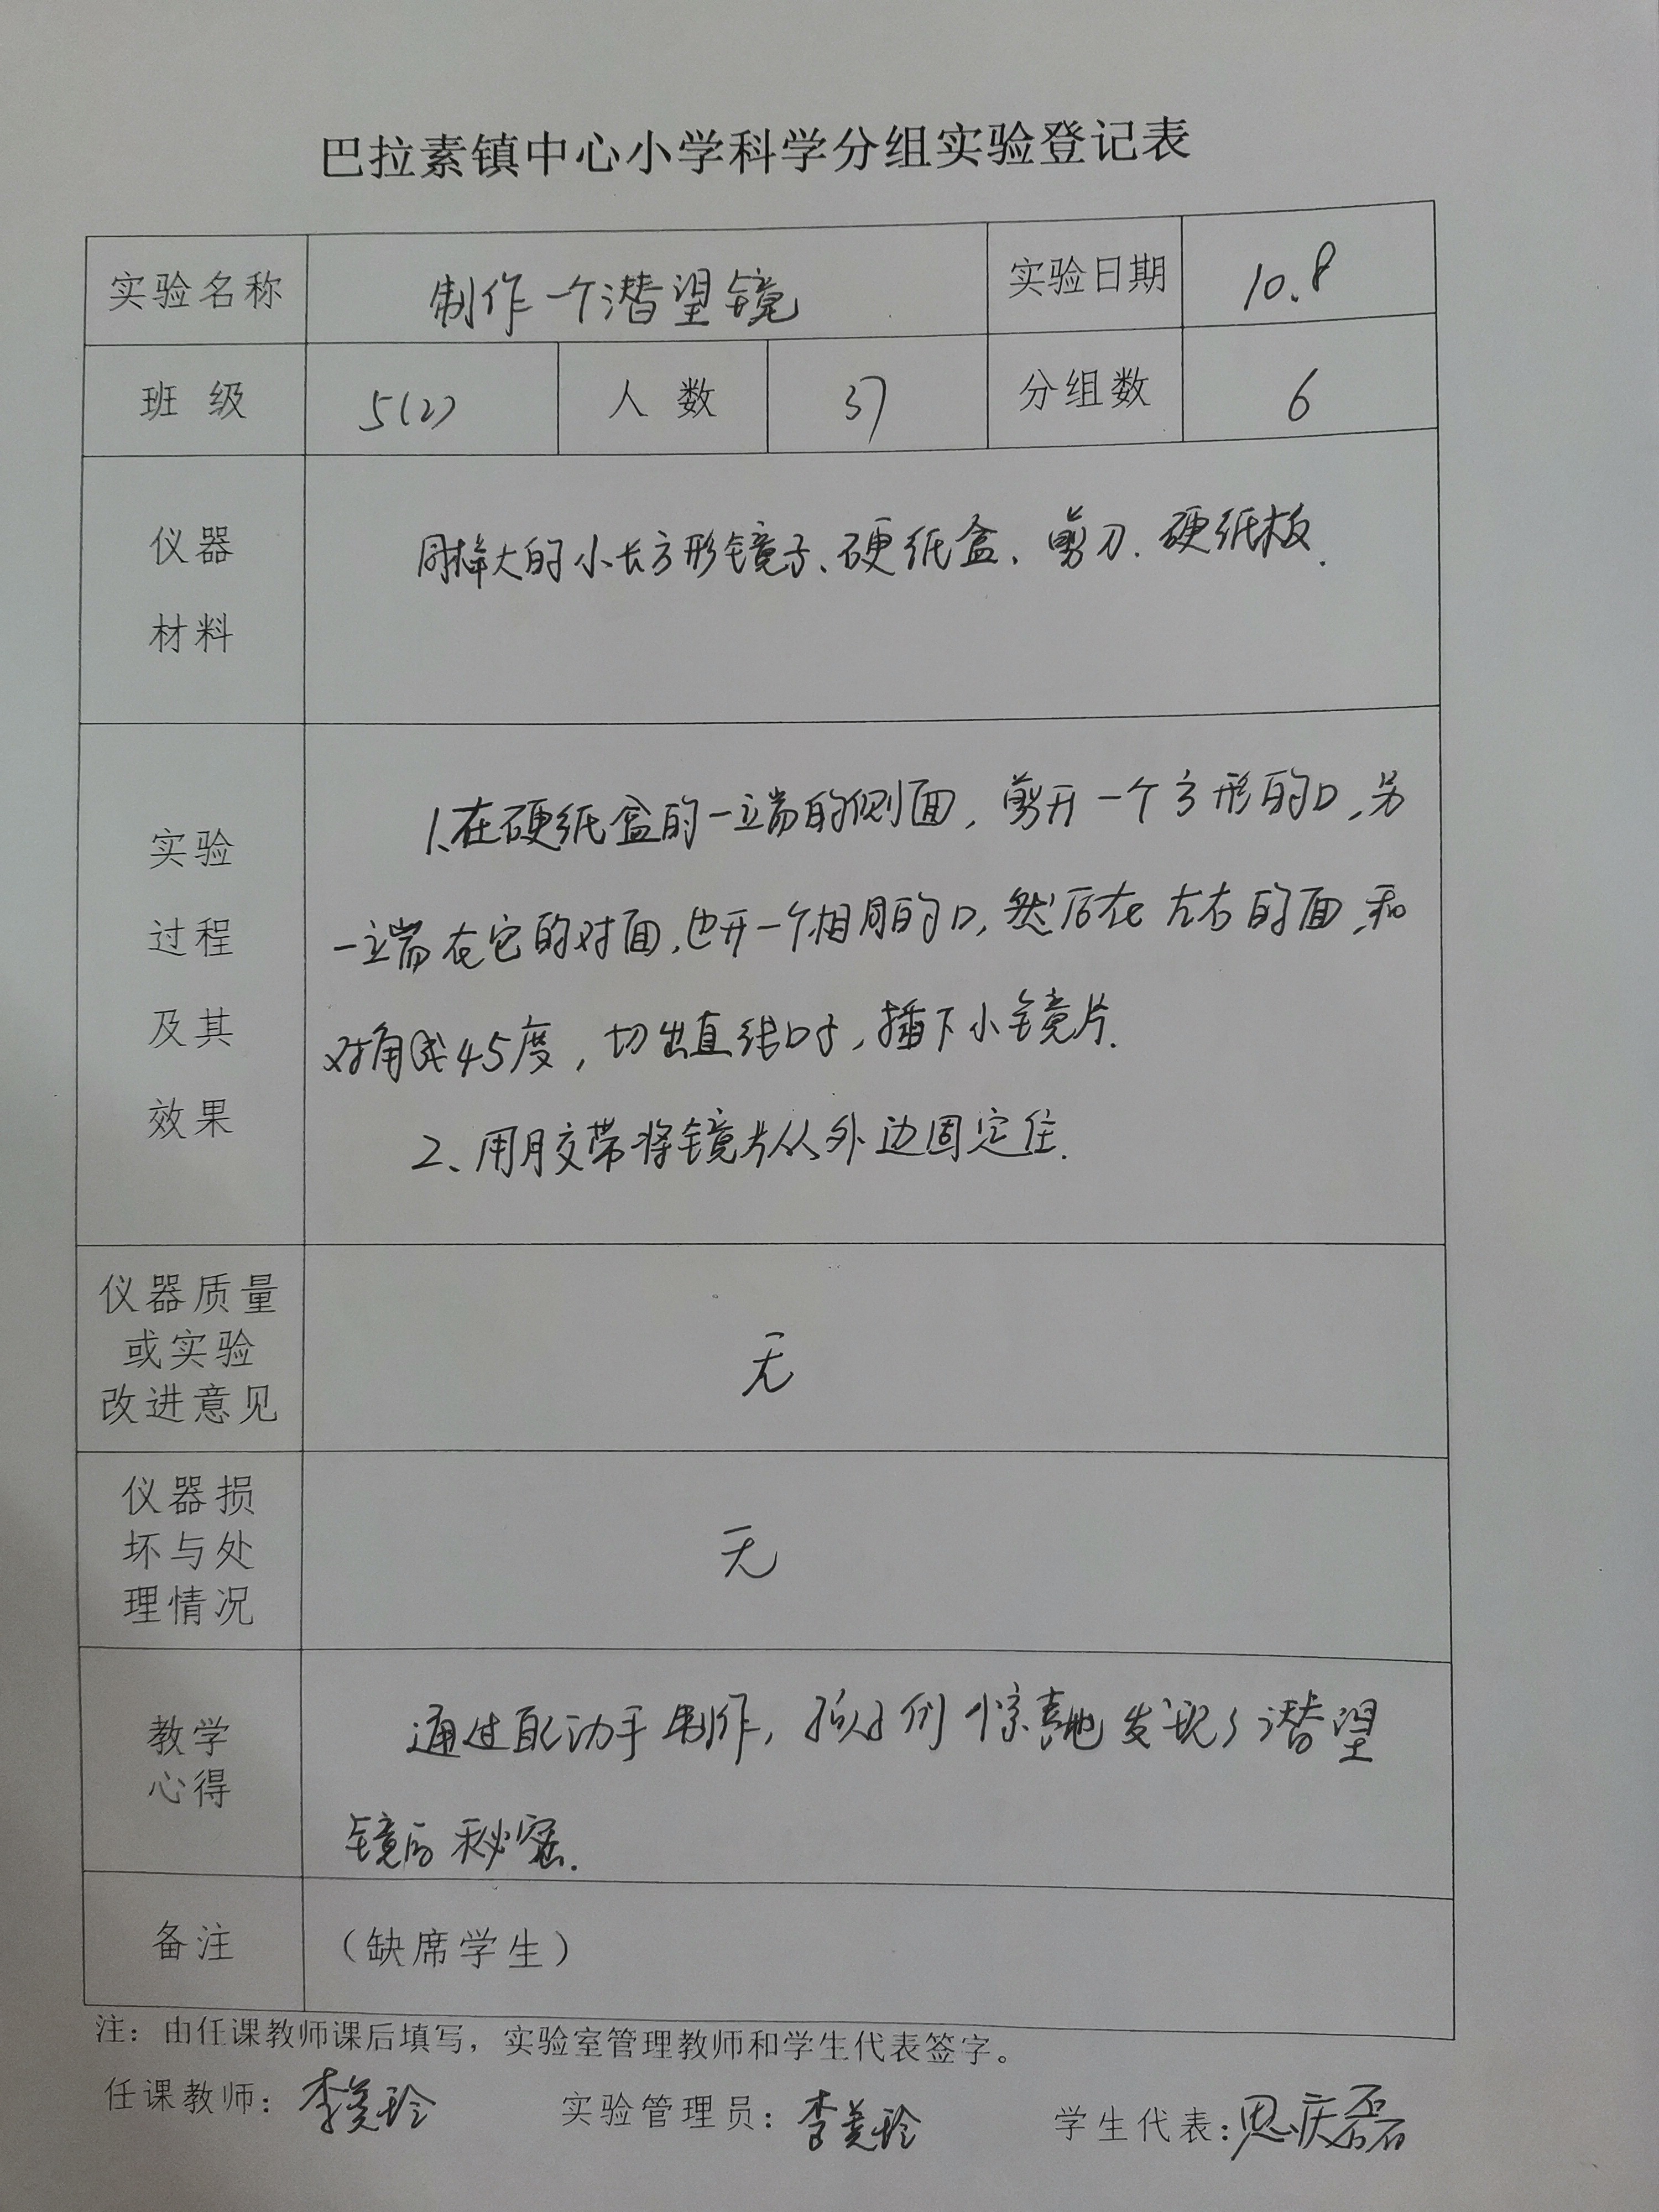 巴拉素镇中心小学科学分组实验登记表
实验名称 制作一个潜望镜 实验日期 10.8
班 级 5(2) 人 数 37 分组数 6
仪器
材料
同样大的小长方形镜子、硬纸盒、剪刀、硬纸板.
实验
过程
及其
效果
1.在硬纸盒的一端的侧面，剪开一个方形的口，另
一端在它的对面，也开一个相同的口，然后在左右的面，和
对角成45度，切出直线口子，插下小镜片.
2、用胶带将镜片从外边固定住.
仪器质量
或实验
改进意见
无
仪器损
坏与处
理情况
无
教学
心得
通过动手制作，孩子们惊喜地发现了潜望
镜的秘密.
备注 （缺席学生）
注：由任课教师课后填写，实验室管理教师和学生代表签字。
任课教师：李美玲 实验管理员：李美玲 学生代表：庆磊